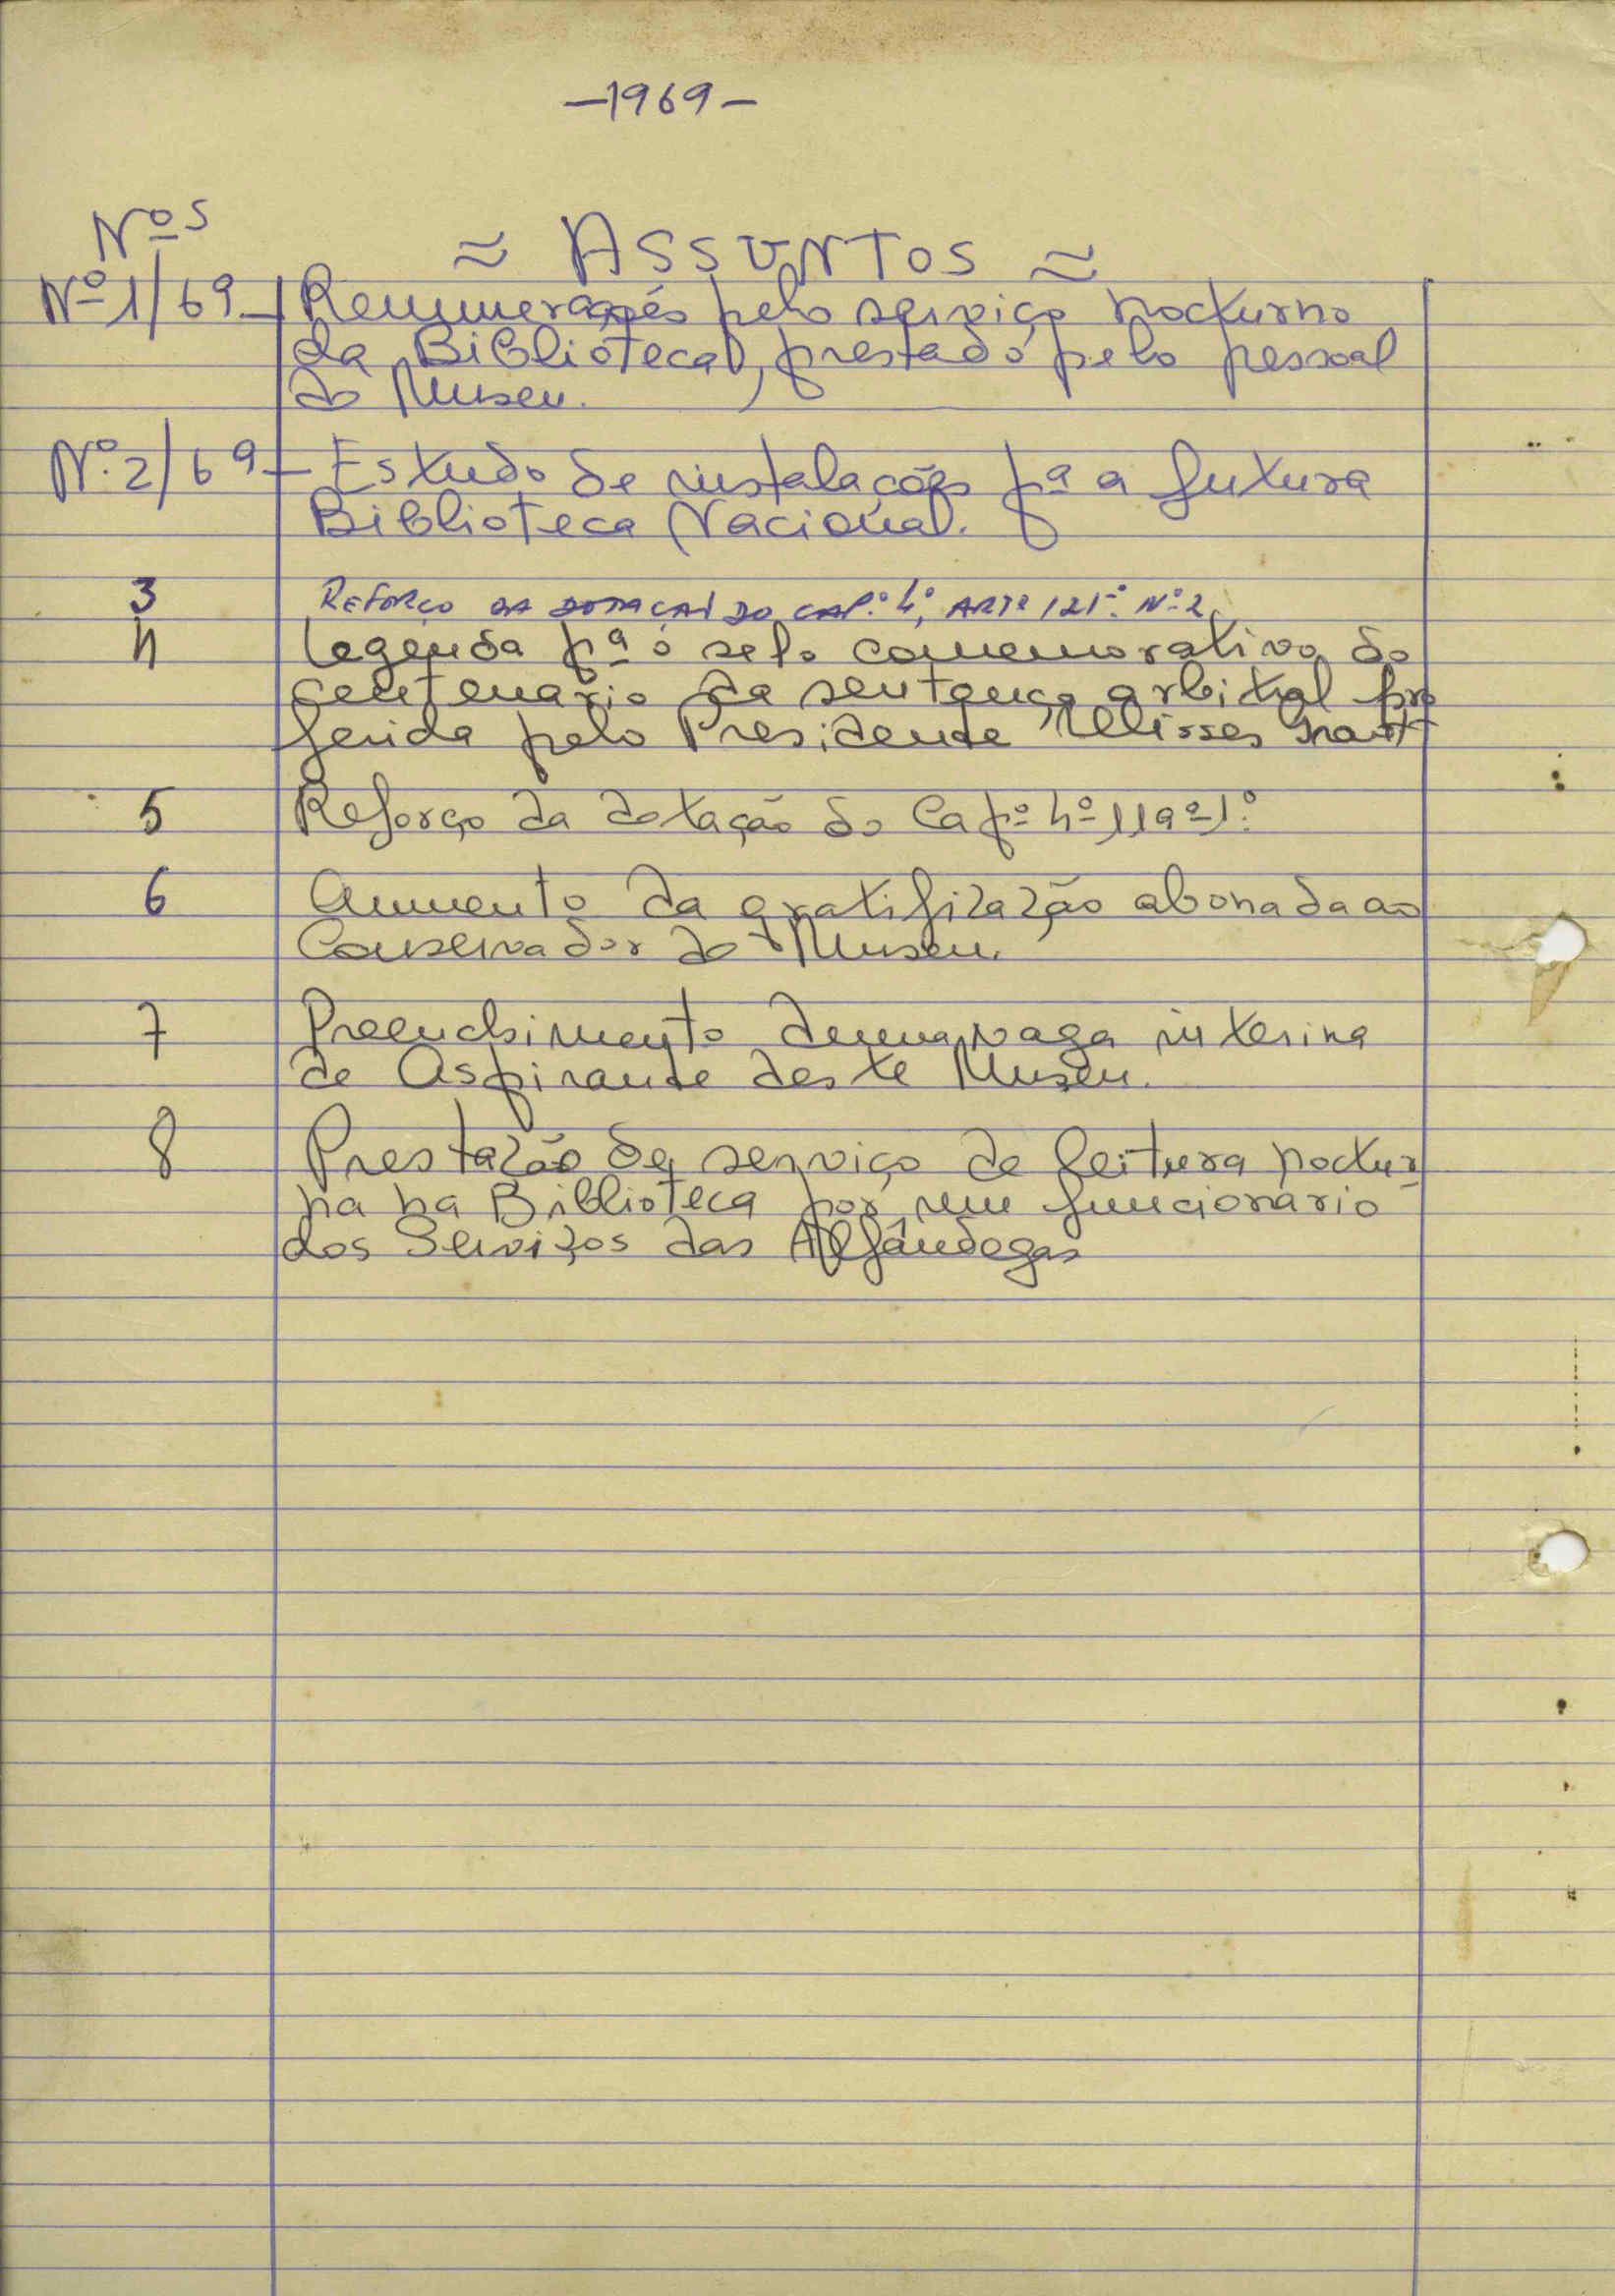 —1969—
Nºs
≈ ASSUNTOS ≈
Nº1/69— Remunerações pelo serviço nocturno
da Biblioteca, prestado pelo pessoal
do Museu.
Nº.2/69— Estudo de instalações pª a futura
Biblioteca Nacional.
3 REFORÇO DA DOTAÇÃO DO CAP.º 4º, ARTº 121º. Nº.2
4 Legenda pª o selo comemorativo do
centenário da sentença arbitral pro
ferida pelo Presidente Ulisses Grant
5 Reforço da dotação do Capº 4º 119º-1º
6 Aumento da gratificação abonada ao
Conservador do Museu.
7 Preenchimento de uma vaga interina
de Aspirante deste Museu.
8 Prestação de serviço de leitura noctur-
na na Biblioteca por um funcionário
dos Serviços das Alfândegas